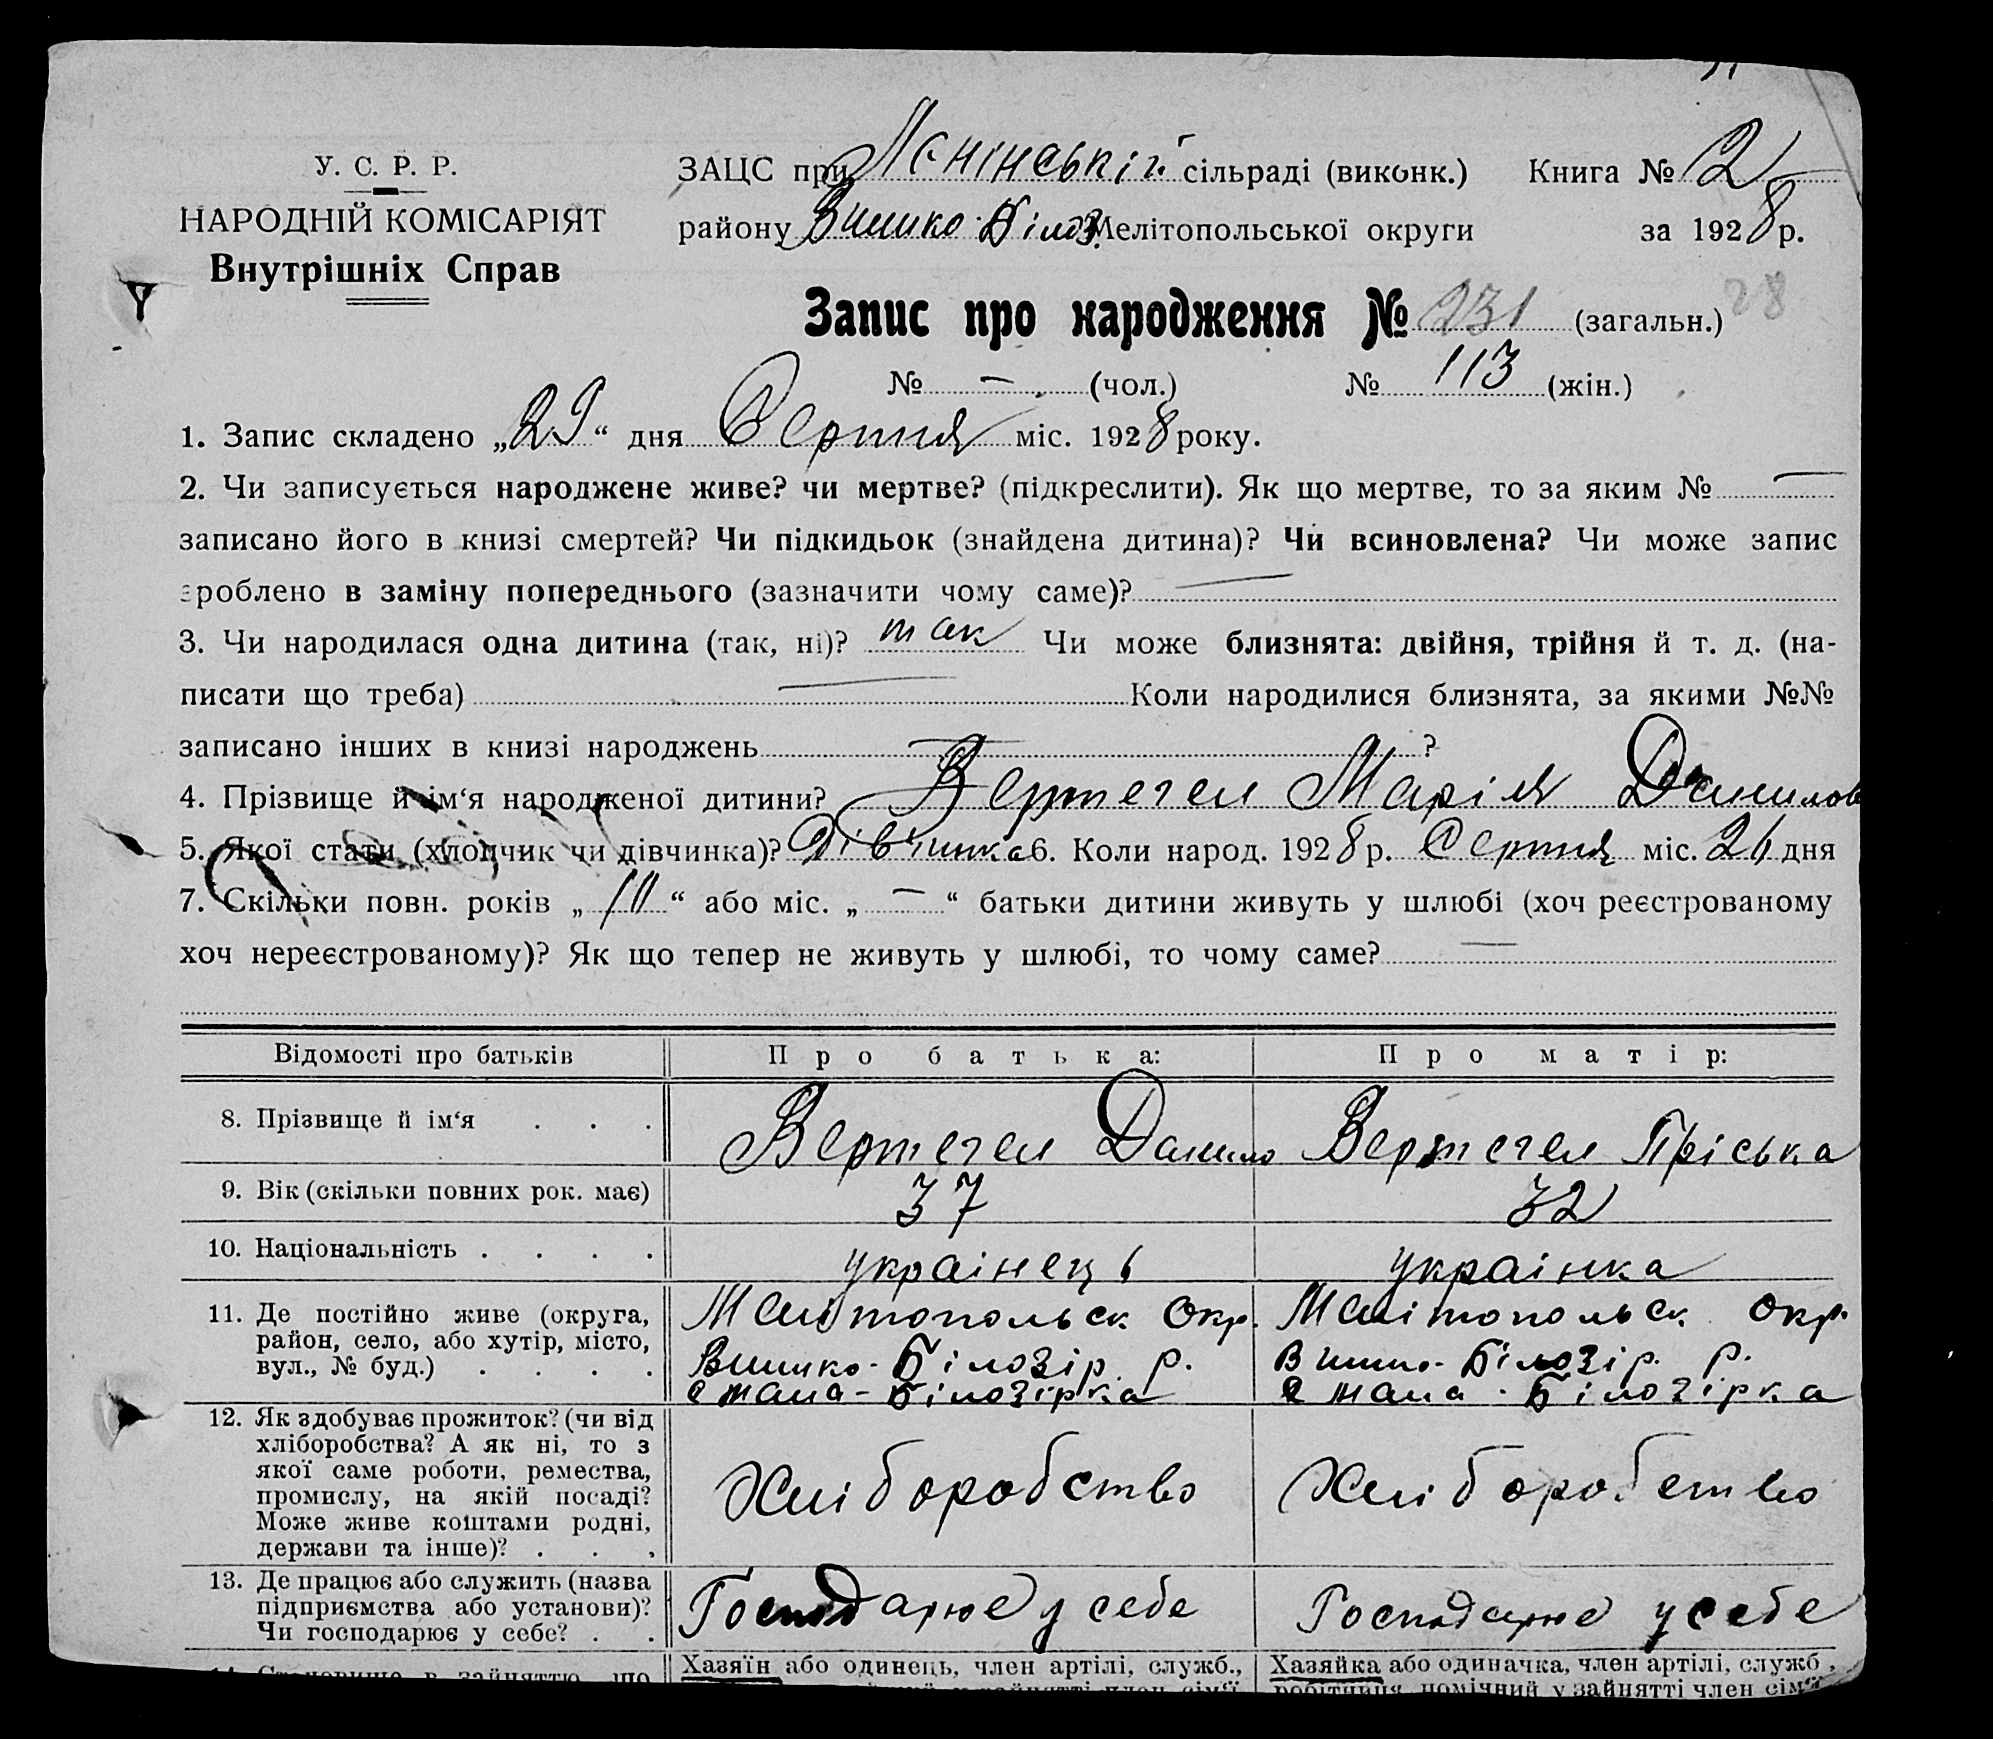 У. С. Р. Р.
НАРОДНІЙ КОМІСАРІЯТ
Внутрішніх Справ
ЗАЦС при Лєнінській сільраді (виконк.) Книга № 2
району Вишко-Білоз. Мелітопольської округи за 1928 р.
Запис про народження № 231 (загальн.) 28
№ — (чол.) № 113 (жін.)
1. Запис складено „29“ дня Серпня міс. 1928 року.
2. Чи записується народжене живе? чи мертве? (підкреслити). Як що мертве, то за яким № —
записано його в книзі смертей? Чи підкидьок (знайдена дитина)? Чи всиновлена? Чи може запис
зроблено в заміну попереднього (зазначити чому саме)? —
3. Чи народилася одна дитина (так, ні)? так Чи може близнята: двійня, трійня й т. д. (на-
писати що треба) — Коли народилися близнята, за якими №№
записано інших в книзі народжень — ?
4. Прізвище й ім‘я народженої дитини? Вертегел Марія Данилов
5. Якої стати (хлопчик чи дівчинка)? Дівчинка 6. Коли народ. 1928 р. Серпня міс. 26 дня
7. Скільки повн. років „10“ або міс. „—“ батьки дитини живуть у шлюбі (хоч реєстрованому
хоч нереєстрованому)? Як що тепер не живуть у шлюбі, то чому саме? —
Відомості про батьків Про батька: Про матір:
8. Прізвище й ім‘я . . . Вертегел Данило Вертегел Пріська
9. Вік (скільки повних рок. має) 37 32
10. Національність . . . . українець українка
11. Де постійно живе (округа,
район, село, або хутір, місто,
вул., № буд.) . . . .
Мелітопольськ Окр.
Вишко-Білозір. р.
с Мала-Білозірка
Мелітопольськ Окр.
Вишко-Білозір. р.
с Мала-Білозірка
12. Як здобуває прожиток? (чи від
хліборобства? А як ні, то з
якої саме роботи, ремества,
промислу, на якій посаді?
Може живе коштами родні,
держави та інше)? . . .
Хліборобство Хліборобство
13. Де працює або служить (назва
підприємства або установи)?
Чи господарює у себе? . .
Господарює у себе Господарює у себе
Хазяїн або одинець, член артілі, служб., Хазяйка або одиначка, член артілі, служб.,
робітниця, помічний у зайнятті член сім‘ї